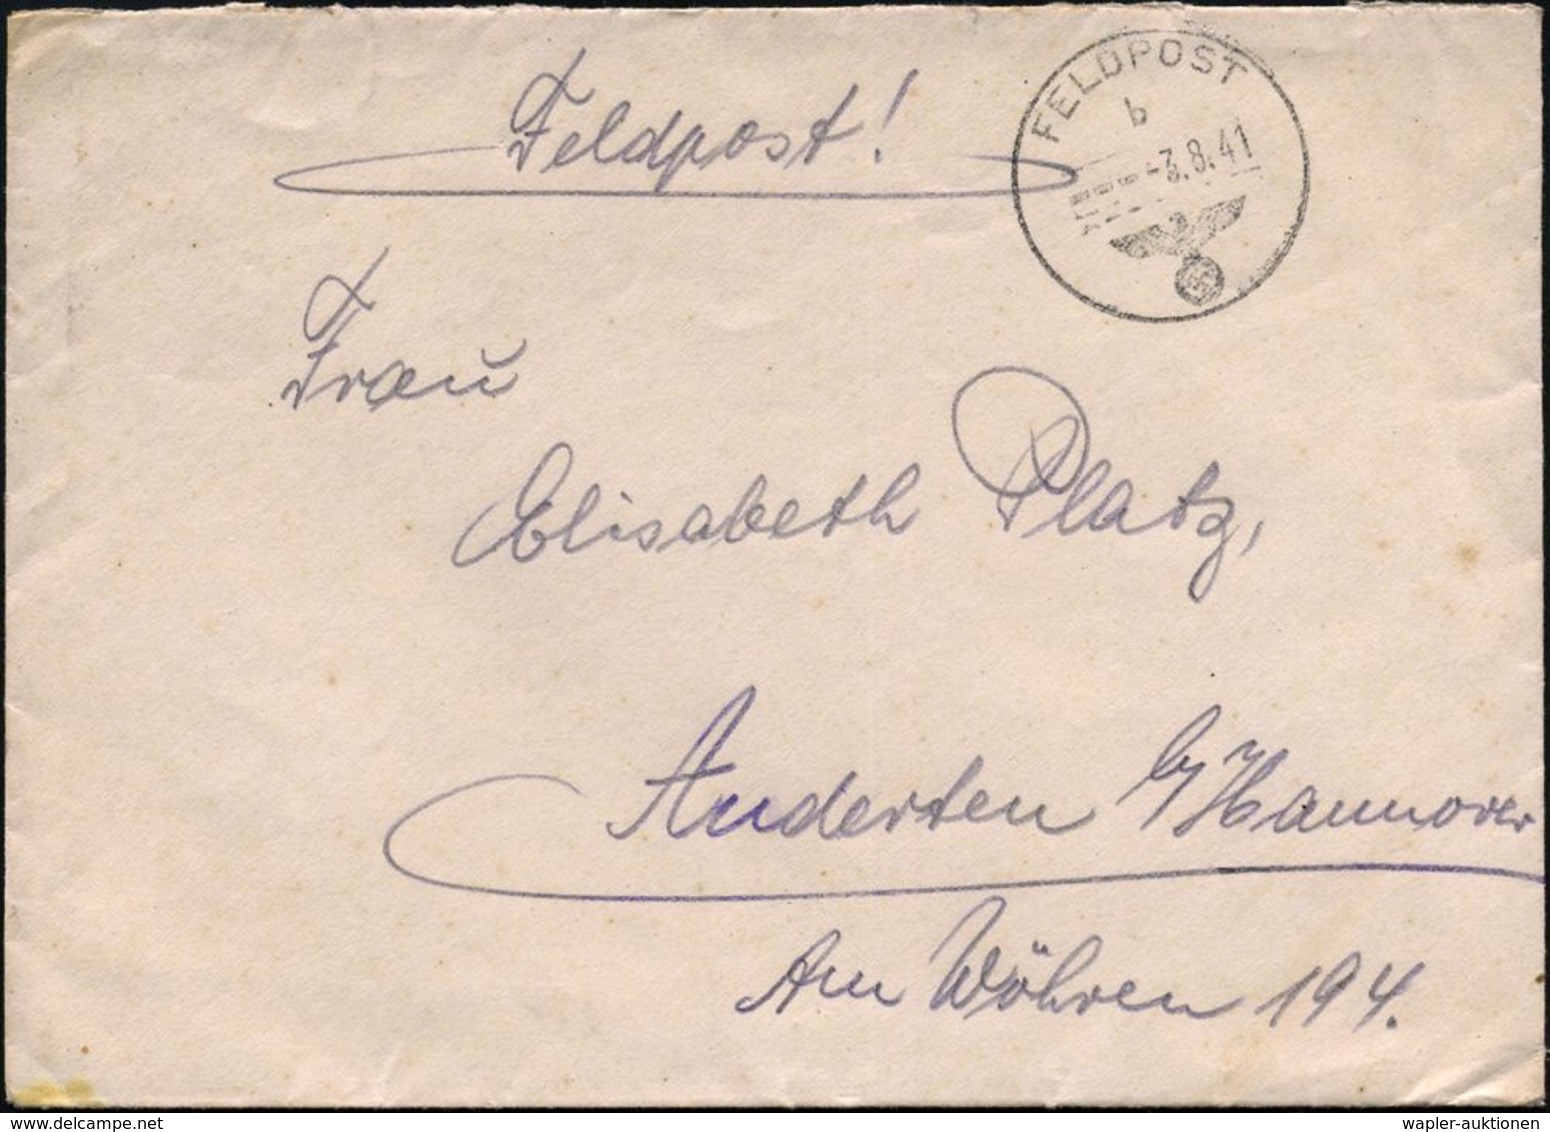 Feldpost!
FELDPOST
b
-3.8.41
Frau
Elisabeth Platz,
Anderten b/Hannover
Am Wöhren 194.
wapler-auktionen